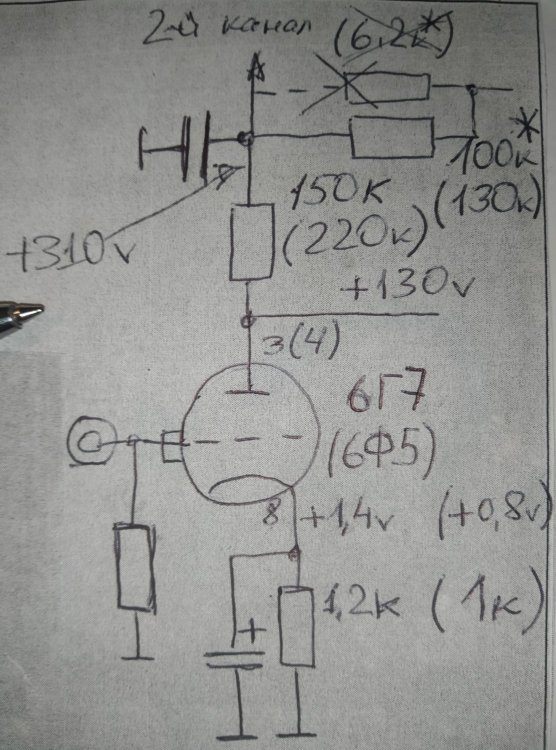 2-й канал (6.2к*)
*
100к
(130к)
150к
(220к)
+310v
+130v
3(4)
6Г7
(6Ф5)
8 +1,4v (+0,8v)
+
1,2к (1к)